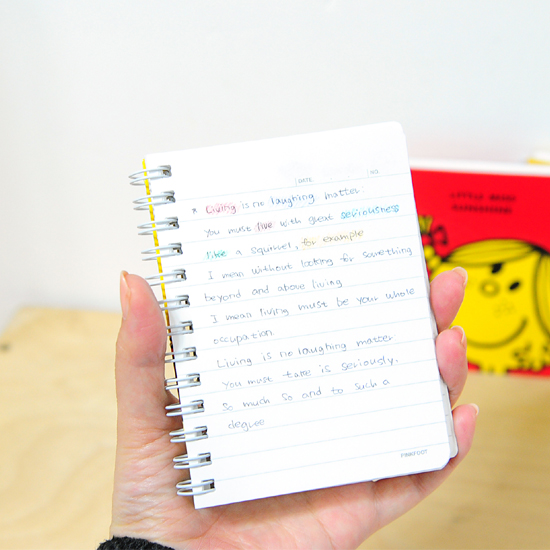 DATE / NO
* Living is no laughing matter.
You must live with great seriousness
like a squirrel, for example
I mean without looking for something
beyond and above living
I mean living must be your whole
occupation
Living is no laughing matter
You must take is seriously.
So much so and to such a
degree
LITTLE MISS
SUNSHINE